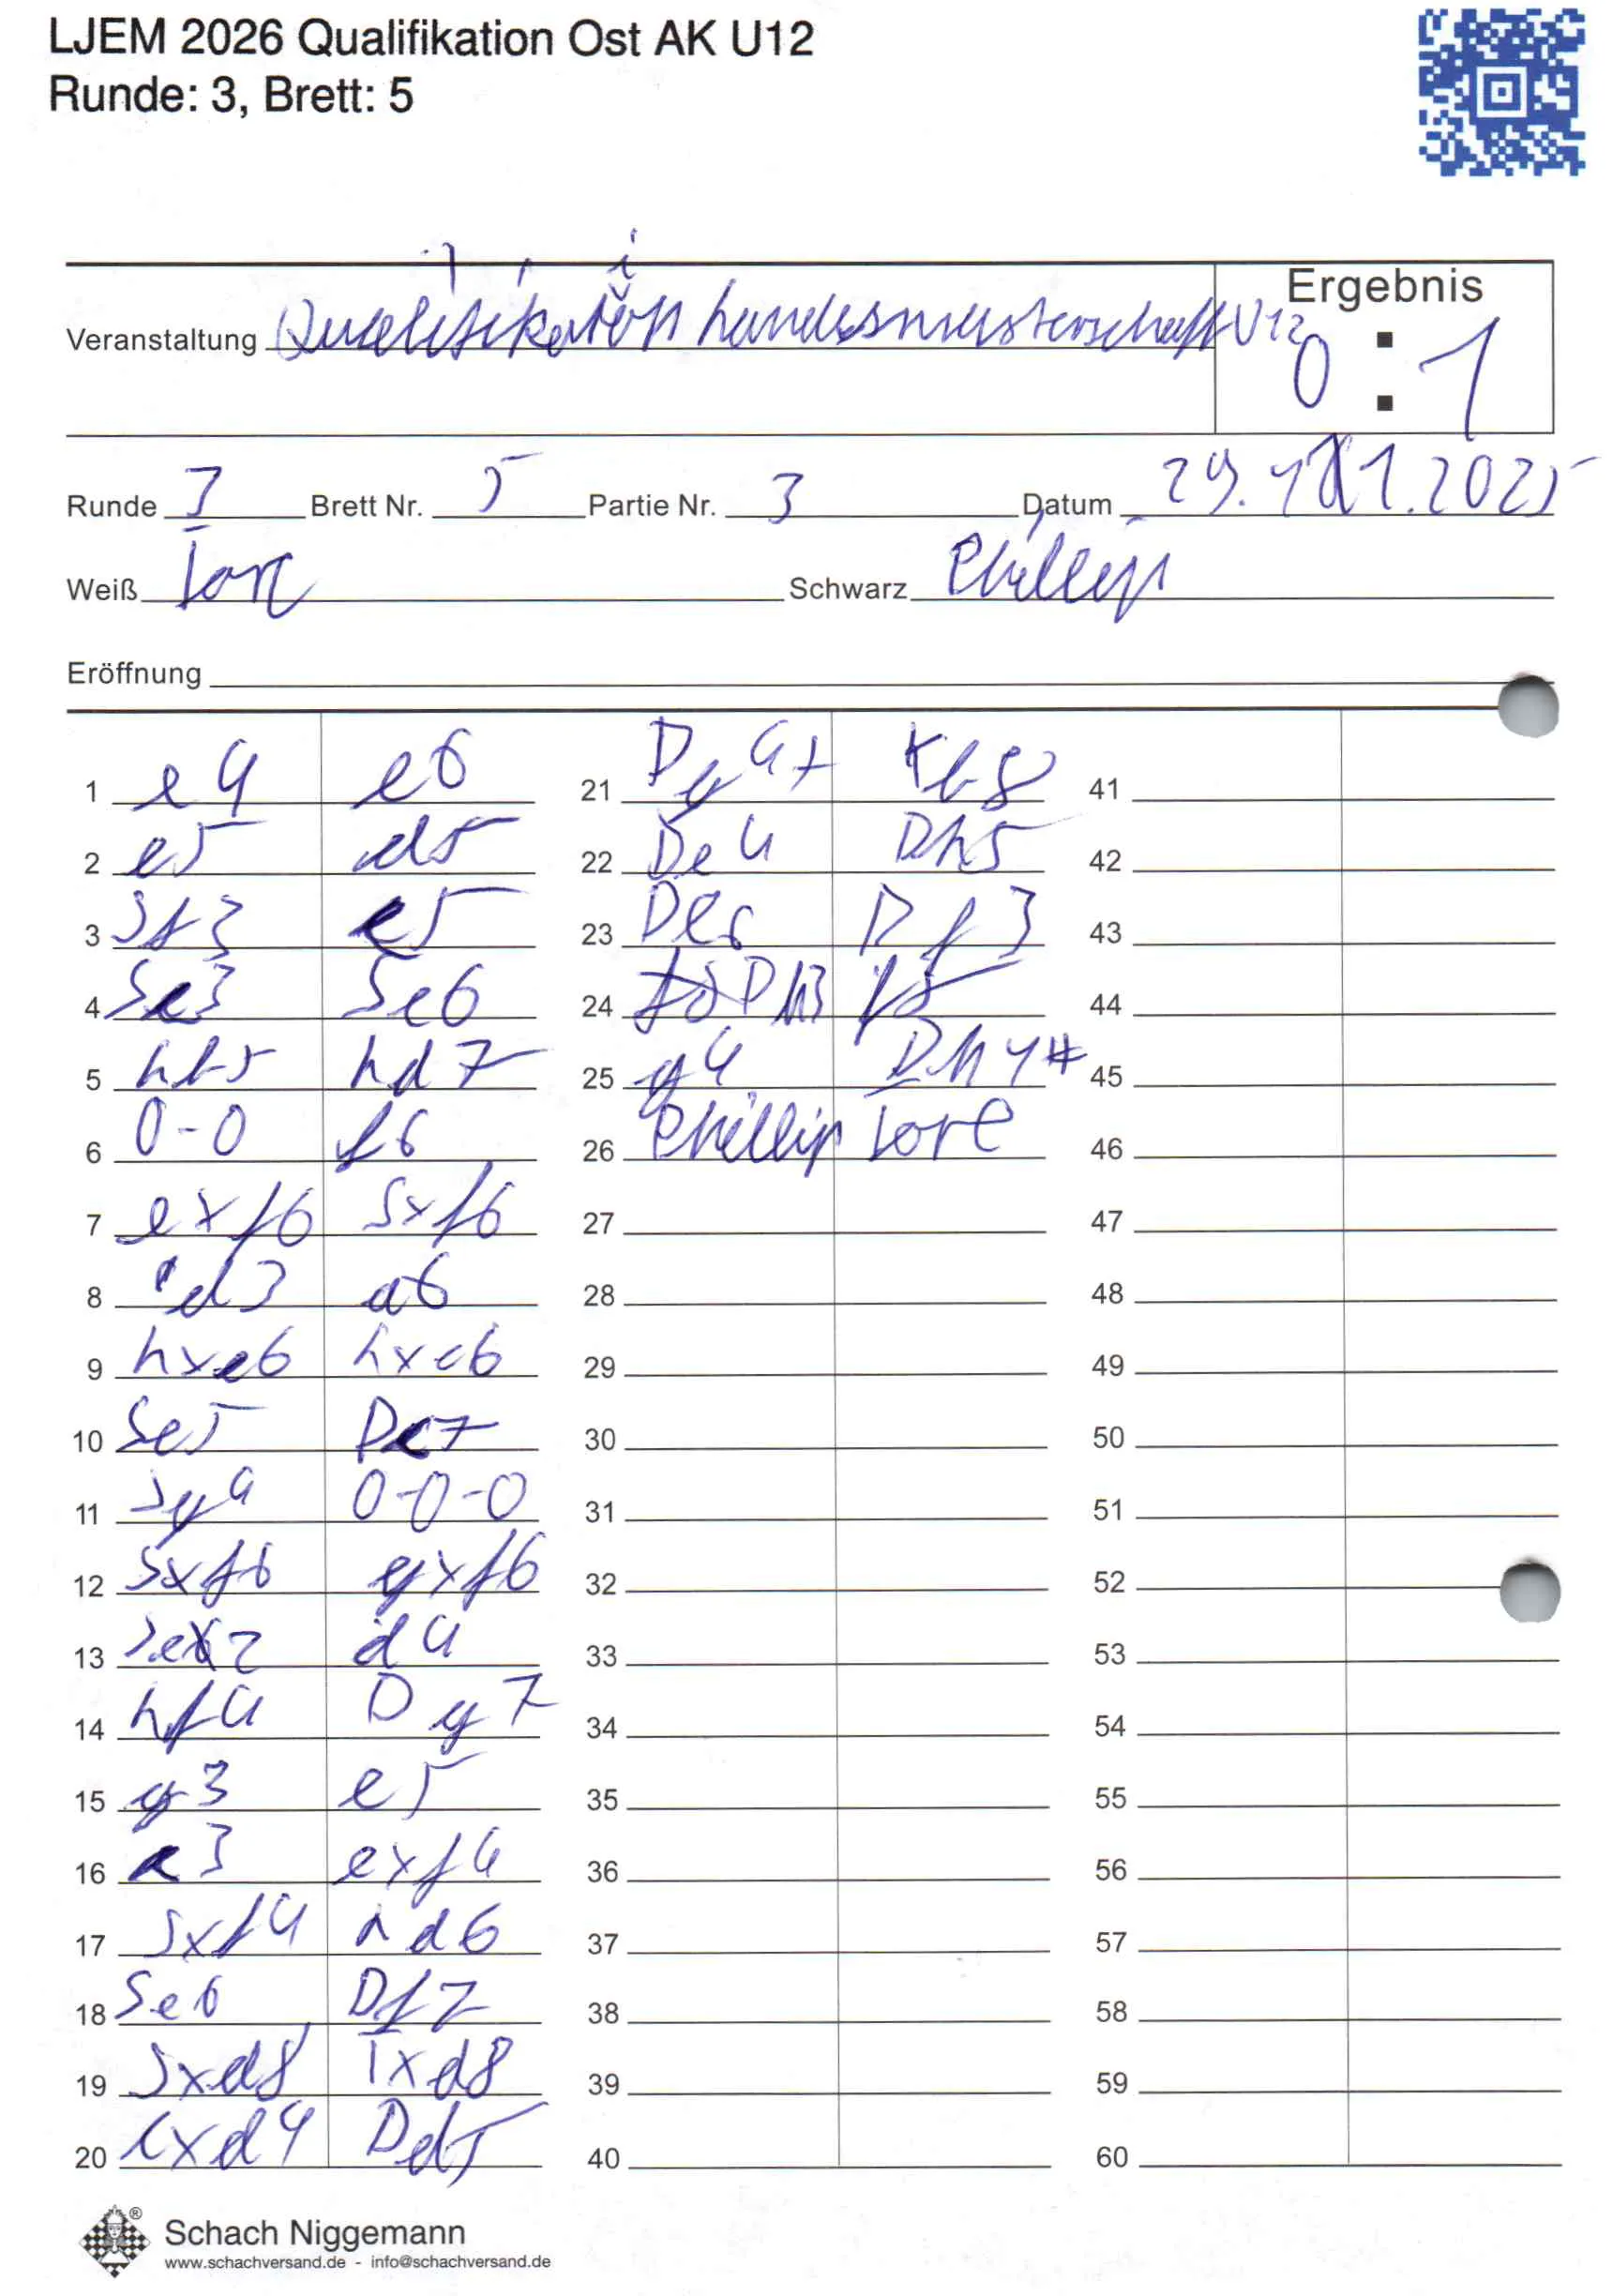 LJEM 2026 Qualifikation Ost AK U12
Runde: 3, Brett: 5
Veranstaltung Qualifikation Landesmeisterschaft U12
Ergebnis
0 : 1
Runde 3 Brett Nr. 5 Partie Nr. 3 Datum 29.11.2025
Weiß Schwarz Phillip
Eröffnung
1 e4 e6 21 Dg4+ Kb8 41
2 e5 d5 22 De4 Dh5 42
3 Sf3 c5 23 De6 Df3 43
4 Sc3 Sc6 24 Dh3 f5 44
5 Lb5 Ld7 25 g4 Dh4# 45
6 0-0 f6 26 Phillip Lore 46
7 exf6 Sxf6 27 47
8 d3 a6 28 48
9 Lxc6 Lxc6 29 49
10 Se5 Dc7 30 50
11 Sg4 0-0-0 31 51
12 Sxf6 gxf6 32 52
13 Se2 d4 33 53
14 Lf4 Dg7 34 54
15 g3 e5 35 55
16 c3 exf4 36 56
17 Sxf4 Ld6 37 57
18 Se6 Df7 38 58
19 Sxd8 Txd8 39 59
20 cxd4 Dd5 40 60
Schach Niggemann
www.schachversand.de - info@schachversand.de